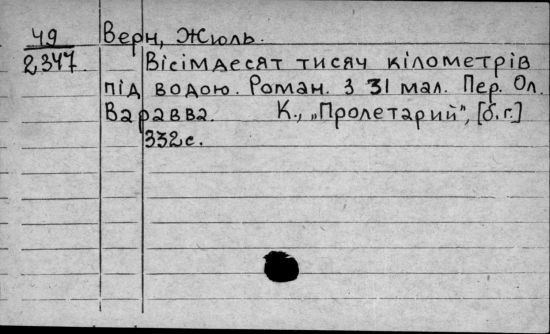 49 Верн, Жюль.
2347 Вісімдесят тисяч кілометрів
під водою. Роман. З 31 мал. Пер. Ол.
Варавва. К., „Пролетарий", [б.г.]
332с.